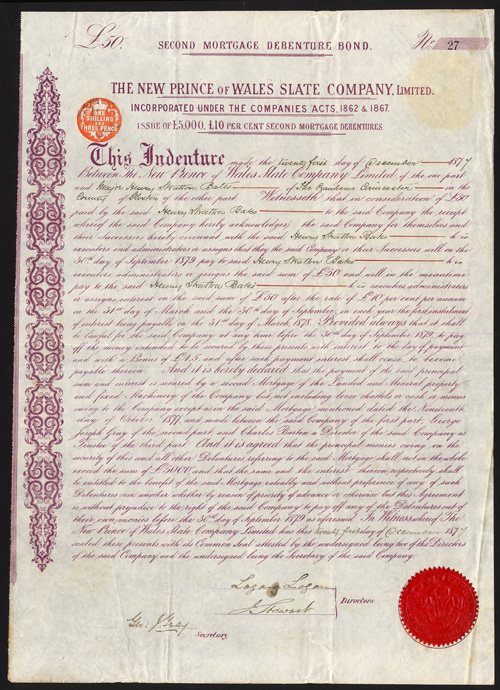 £50. SECOND MORTGAGE DEBENTURE BOND. No 27
THE NEW PRINCE OF WALES SLATE COMPANY, LIMITED.
INCORPORATED UNDER THE COMPANIES ACTS, 1862 & 1867.
ISSUE OF £5,000, £10 PER CENT SECOND MORTGAGE DEBENTURES
ONE
SHILLING
AND
THREE PENCE
This Indenture made the twenty first day of December 1877
Between The New Prince of Wales Slate Company Limited of the one part
and Major Henry Stratton Bates of The Cirencester in the
County of of the other part Witnesseth that in consideration of £50
paid by the said Henry Stratton Bates to the said Company the receipt
whereof the said Company hereby acknowledges the said Company for themselves and
their successors hereby covenant with the said Henry Stratton Bates his
executors administrators and assigns that they the said Company or their Successors will on the
30th day of September 1879 pay to said Henry Stratton Bates his
executors administrators or assigns the said sum of £50 and will in the meantime
pay to the said Henry Stratton Bates his executors administrators
or assigns interest on the said sum of £50 after the rate of £10 per cent per annum
on the 31st day of March and the 30th day of September in each year the first instalment
of interest being payable on the 31st day of March 1878. Provided always that it shall
be lawful for the said Company at any time before the 30th day of September 1879 to pay
off the money intended to be secured by these presents with interest to the day of payment
and a Bonus of £1.5, and after such payment interest shall cease to become
payable thereon. And it is hereby declared that the payment of the said principal
sum and interest is secured by a second Mortgage of the Landed and Mineral property
and fixed Machinery of the Company but not including loose chattels or cash or monies
owing to the Company except as in the said Mortgage mentioned dated the Nineteenth
day of 1877 and made between the said Company of the first part, George
Joseph Gray of the second part and Charles Paxton a Creditor of the said Company as
Trustee of the third part. And it is agreed that the principal monies owing on the
security of this and all other Debentures referring to the said Mortgage shall not in the whole
exceed the sum of £5000 and that the same and the interest thereon respectively shall
be entitled to the benefit of the said Mortgage rateably and without preference of any of such
Debentures one another whether by reason of priority of advance or otherwise but this Agreement
is without prejudice to the right of the said Company to pay off any of the Debentures out of
their own monies before the 30th day of September 1879 as aforesaid. In Witness whereof The
New Prince of Wales Slate Company Limited has this twenty first day of December 1877
sealed these presents with its Common Seal attested by the undersigned being two of the Directors
of the said Company and the undersigned being the Secretary of the said Company.
Logan Logan
J Stewart
Directors
Geo. J Gray
Secretary